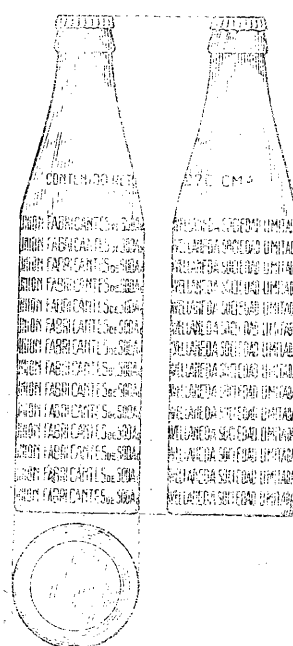 CONTENIDO NET
UNION FABRICANTES DE SODA
UNION FABRICANTES DE SODA
UNION FABRICANTES DE SODA
UNION FABRICANTES DE SODA
UNION FABRICANTES DE SODA
UNION FABRICANTES DE SODA
UNION FABRICANTES DE SODA
UNION FABRICANTES DE SODA
UNION FABRICANTES DE SODA
UNION FABRICANTES DE SODA
UNION FABRICANTES DE SODA
UNION FABRICANTES DE SODA
UNION FABRICANTES DE SODA
UNION FABRICANTES DE SODA
CM³
VELLANEDA SOCIEDAD LIMITAD
VELLANEDA SOCIEDAD LIMITAD
VELLANEDA SOCIEDAD LIMITAD
VELLANEDA SOCIEDAD LIMITAD
VELLANEDA SOCIEDAD LIMITAD
VELLANEDA SOCIEDAD LIMITAD
VELLANEDA SOCIEDAD LIMITAD
VELLANEDA SOCIEDAD LIMITAD
VELLANEDA SOCIEDAD LIMITAD
VELLANEDA SOCIEDAD LIMITAD
VELLANEDA SOCIEDAD LIMITAD
VELLANEDA SOCIEDAD LIMITAD
VELLANEDA SOCIEDAD LIMITAD
VELLANEDA SOCIEDAD LIMITAD